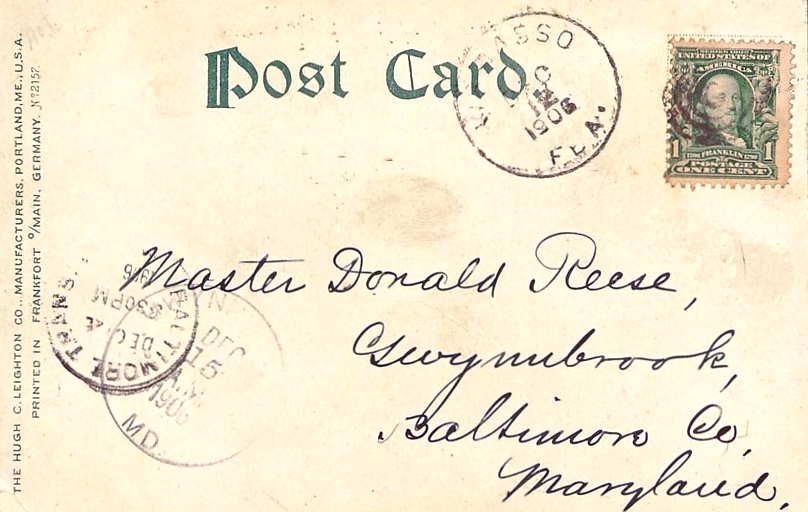 Post Card
ASSO
12
1906
FLA.
UNITED STATES OF
AMERICA
1 1
1706 FRANKLIN 1790
POSTAGE
ONE CENT
Master Donald Reese,
Gwynnbrook,
Baltimore Co,
Maryland,
BALTIMORE TRANS.
DEC 4
530PM
DEC
15
A.M.
1906
MD.
THE HUGH C. LEIGHTON CO., MANUFACTURERS, PORTLAND, ME., U.S.A.
PRINTED IN FRANKFORT o/MAIN, GERMANY. No 2157.